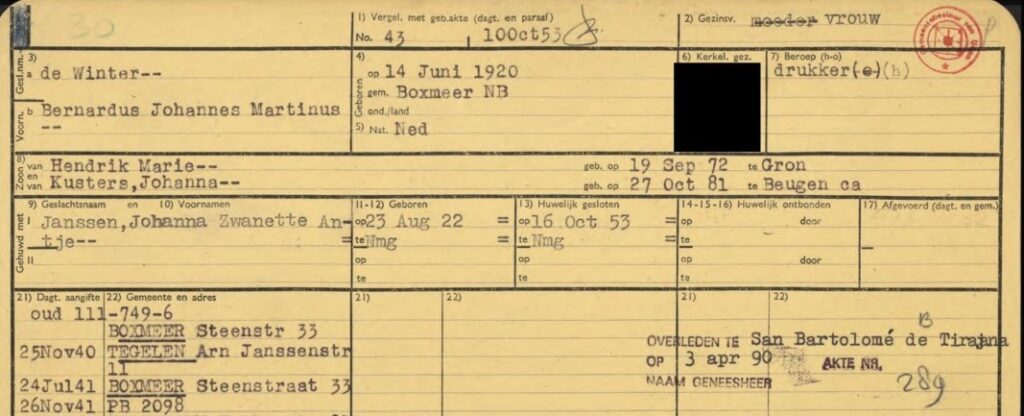 30
1) Vergel. met geb.akte (dagt. en paraaf)
No. 43 , 10Oct53
2) Gezinsv. moeder vrouw
Gesl.nm. a 3) de Winter--
Voorn. b Bernardus Johannes Martinus
--
4) Geboren
op 14 Juni 1920
gem. Boxmeer NB
ond./land
5) Nat. Ned
6) Kerkel. gez.
7) Beroep (h-o)
drukker(e)(h)
8) Zoon van Hendrik Marie-- geb. op 19 Sep 72 te Gron
en van Kusters,Johanna-- geb. op 27 Oct 81 te Beugen ca
Gehuwd met
9) Geslachtsnaam en 10) Voornamen
I Janssen,Johanna Zwanette An-
tje-- =
II
11-12) Geboren
op 23 Aug 22 =
te Nmg =
op
te
13) Huwelijk gesloten
op 16 Oct 53 =
te Nmg =
op
te
14-15-16) Huwelijk ontbonden
op door
te
op door
te
17) Afgevoerd (dagt. en gem.)
21) Dagt. aangifte 22) Gemeente en adres
21) 22)
21) 22)
oud 111-749-6
BOXMEER Steenstr 33
25Nov40 TEGELEN Arn Janssenstr
11
24Jul41 BOXMEER Steenstraat 33
26Nov41 PB 2098
B
OVERLEDEN TE San Bartolomé de Tirajana
OP 3 apr 90 AKTE NR.
NAAM GENEESHEER 289